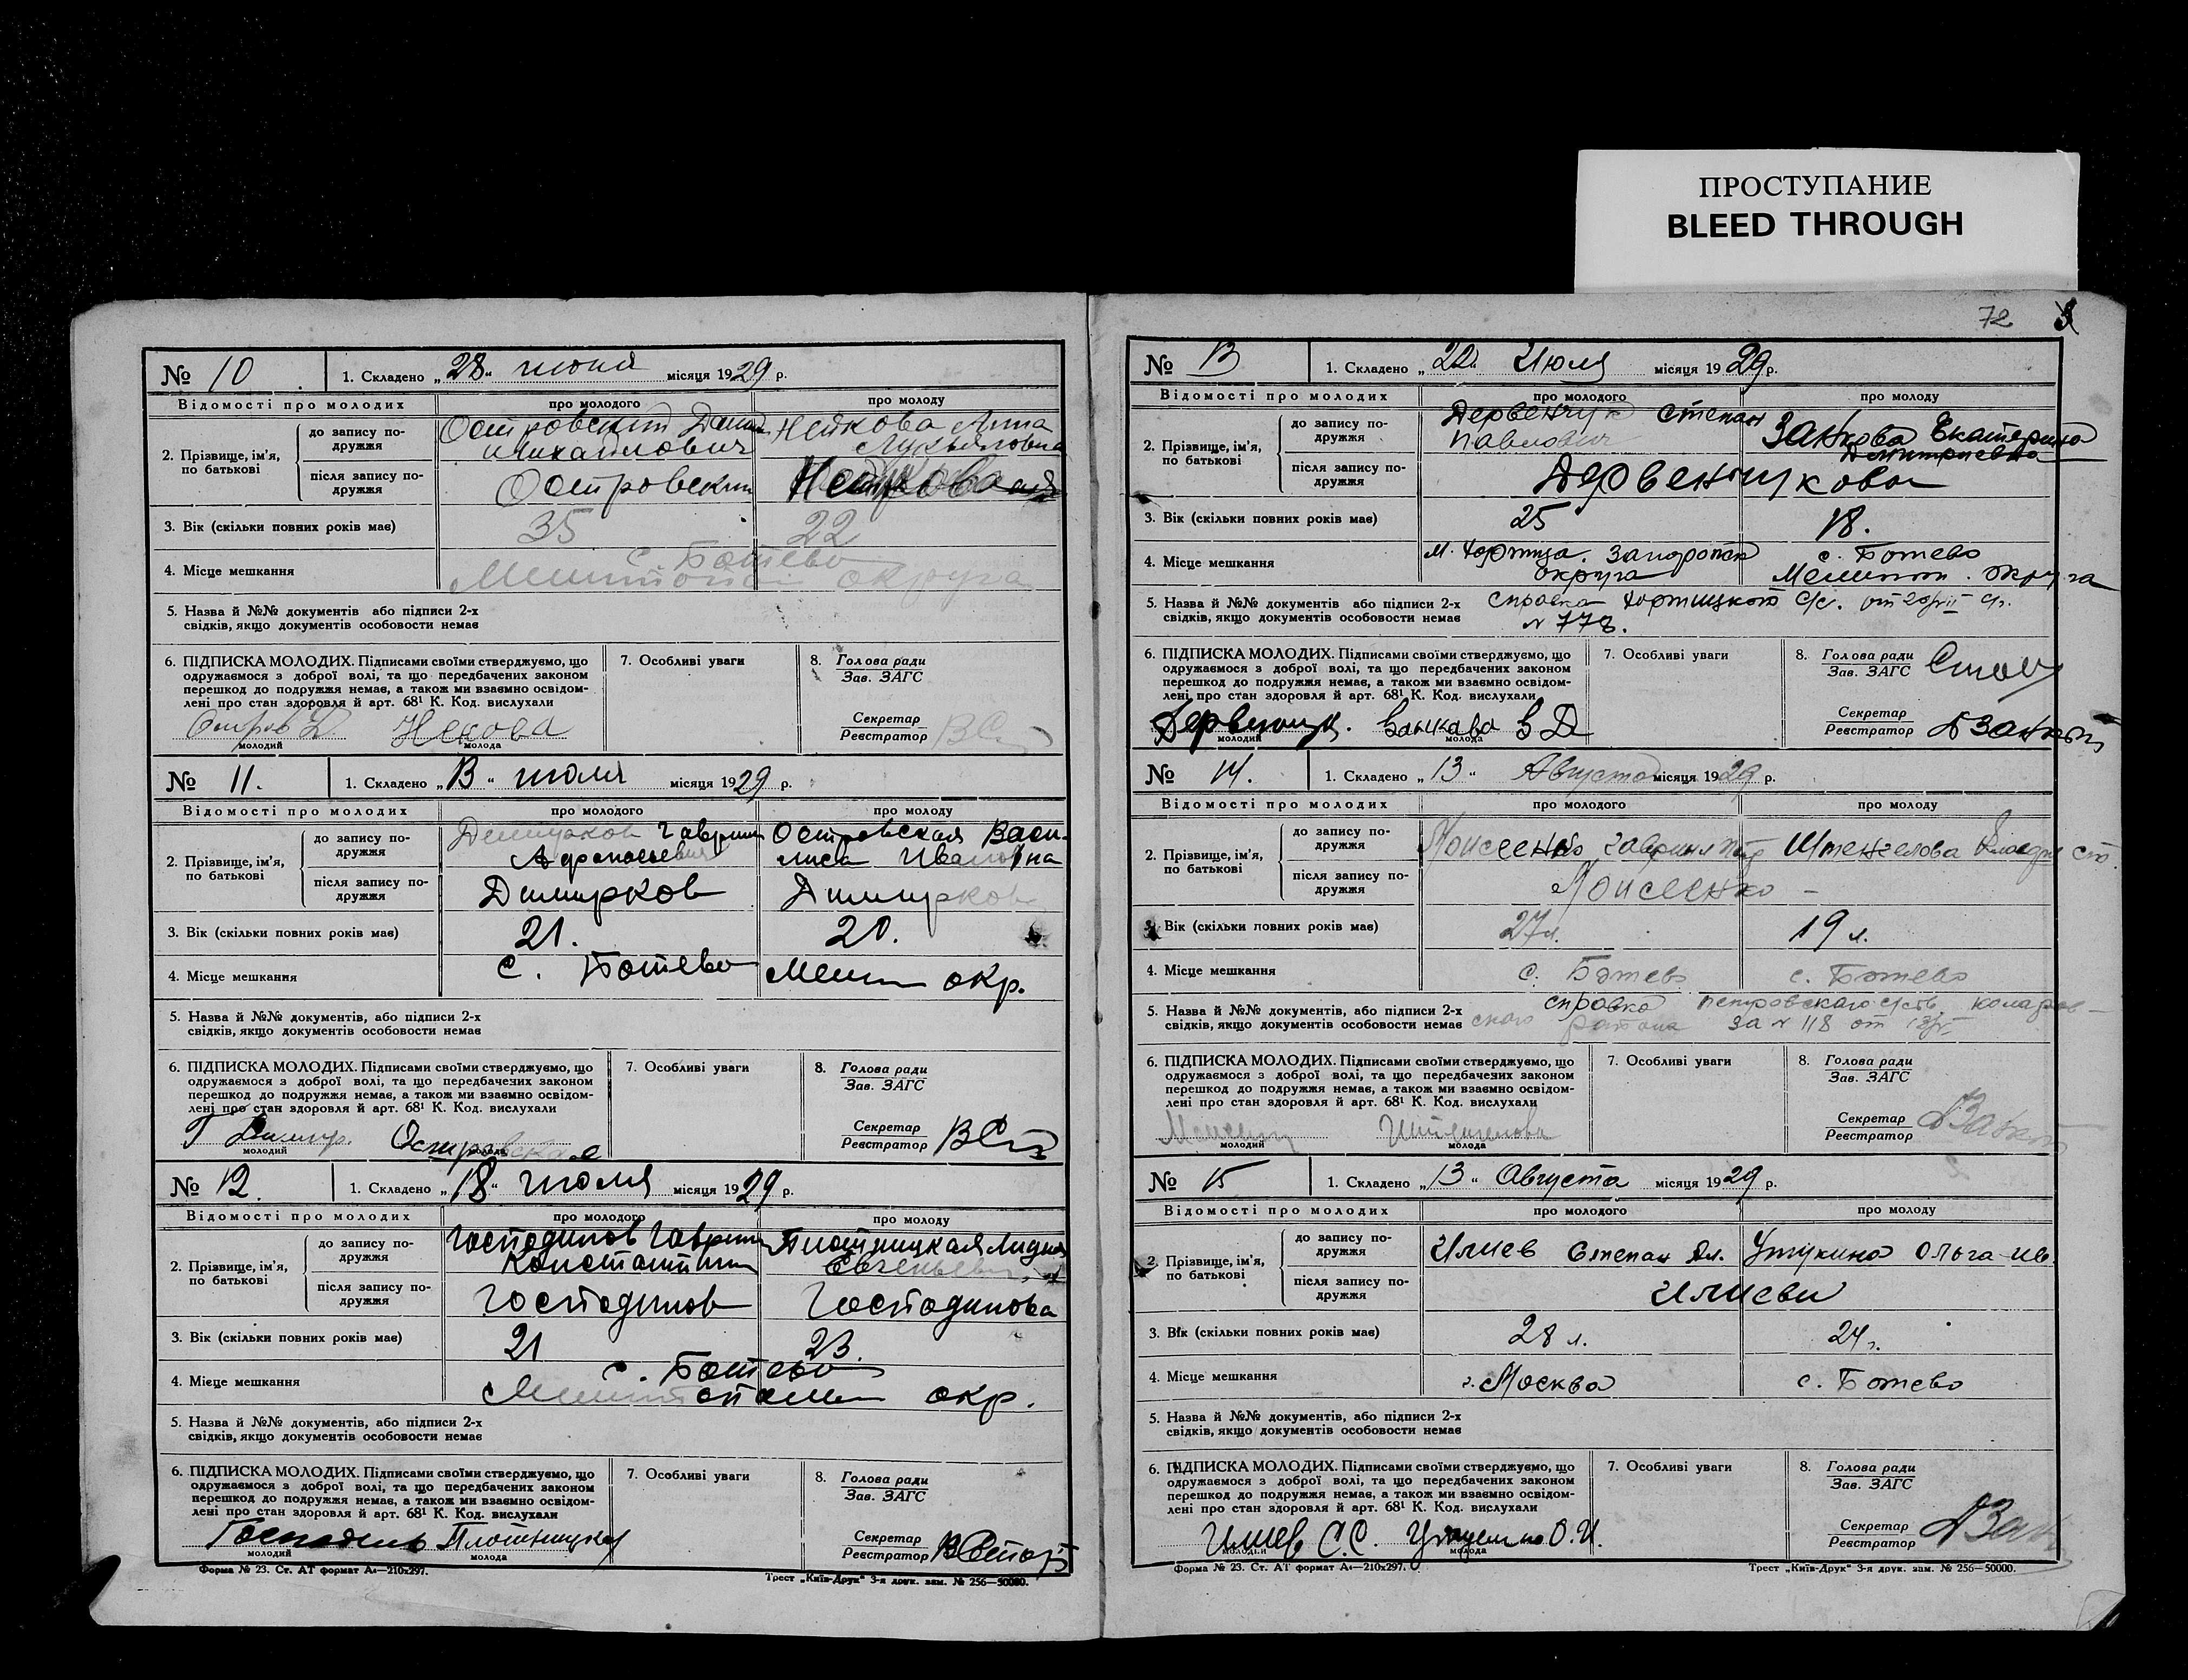 ПРОСТУПАНИЕ
BLEED THROUGH
72
№ 10 1. Складено „28“ июня місяця 1929 р.
Відомості про молодих про молодого про молоду
2. Прізвище, ім'я, по батькові
до запису по-дружжя Островский Михайлович Нейкова Анна Лукьяновна
після запису по-дружжя Островский
3. Вік (скільки повних років має) 35 22
4. Місце мешкання с. Ботево
округа
5. Назва й №№ документів або підписи 2-х
свідків, якщо документів особовости немає
6. ПІДПИСКА МОЛОДИХ. Підписами своїми стверджуємо, що
одружаємося з доброї волі, та що передбачених законом
перешкод до подружжя немає, а також ми взаємно освідом-
лені про стан здоров'я й арт. 68¹ К. Код. вислухали
7. Особливі уваги
8. Голова ради
Зав. ЗАГС
Секретар
Реєстратор
молодий молода
№ 11. 1. Складено „13“ июля місяця 1929 р.
Відомості про молодих про молодого про молоду
2. Прізвище, ім'я, по батькові
до запису по-дружжя Димурков Гаврил Афанасьевич Островская Васи-
лиса Ивановна
після запису по-дружжя Димурков Димурков
3. Вік (скільки повних років має) 21. 20.
4. Місце мешкання с. Ботево окр.
5. Назва й №№ документів, або підписи 2-х
свідків, якщо документів особовости немає
6. ПІДПИСКА МОЛОДИХ. Підписами своїми стверджуємо, що
одружаємося з доброї волі, та що передбачених законом
перешкод до подружжя немає, а також ми взаємно освідом-
лені про стан здоровля й арт. 68¹ К. Код. вислухали
7. Особливі уваги
8. Голова ради
Зав. ЗАГС
Секретар
Реєстратор
Островская
молодий молода
№ 12. 1. Складено „18“ июля місяця 1929 р.
Відомості про молодих про молодого про молоду
2. Прізвище, ім'я, по батькові
до запису по-дружжя Господинов Гаврил Плотницкая Лидия
після запису по-дружжя Господинов Господинова
3. Вік (скільки повних років має) 21 23.
4. Місце мешкання с. Ботево
окр.
5. Назва й №№ документів, або підписи 2-х
свідків, якщо документів особовости немає
6. ПІДПИСКА МОЛОДИХ. Підписами своїми стверджуємо, що
одружаємося з доброї волі, та що передбачених законом
перешкод до подружжя немає, а також ми взаємно освідом-
лені про стан здоровля й арт. 68¹ К. Код. вислухали
7. Особливі уваги
8. Голова ради
Зав. ЗАГС
Секретар
Реєстратор
молодий молода
Форма № 23. Ст. АТ формат А4—210х297.
Трест „Київ-Друк“ 3-я друк. зам. № 256—50000.
№ 13 1. Складено „22“ Июля місяця 1929 р.
Відомості про молодих про молодого про молоду
2. Прізвище, ім'я, по батькові
до запису по-дружжя Дервенчук Степан Павлович Занкова Екатерина Дмитриевна
після запису по-дружжя Дервенчукова
3. Вік (скільки повних років має) 25 18.
4. Місце мешкання округа с. Ботево
округа
5. Назва й №№ документів або підписи 2-х справка Хортицкого с/с.
свідків, якщо документів особовости немає № 778.
6. ПІДПИСКА МОЛОДИХ. Підписами своїми стверджуємо, що
одружаємося з доброї волі, та що передбачених законом
перешкод до подружжя немає, а також ми взаємно освідом-
лені про стан здоровля й арт. 68¹ К. Код. вислухали
7. Особливі уваги
8. Голова ради
Зав. ЗАГС
Секретар
Реєстратор
молодий молода
№ 14. 1. Складено „13“ Августа місяця 1929 р.
Відомості про молодих про молодого про молоду
2. Прізвище, ім'я, по батькові
до запису по-дружжя Моисеенко Гаврил Штенгелова
після запису по-дружжя Моисеенко –
3. Вік (скільки повних років має) 27 л. 19 л.
4. Місце мешкання с. Ботево с. Ботево
5. Назва й №№ документів, або підписи 2-х справка петровскаго
свідків, якщо документів особовости немає района за № 118 от
6. ПІДПИСКА МОЛОДИХ. Підписами своїми стверджуємо, що
одружаємося з доброї волі, та що передбачених законом
перешкод до подружжя немає, а також ми взаємно освідом-
лені про стан здоровля й арт. 68¹ К. Код. вислухали
7. Особливі уваги
8. Голова ради
Зав. ЗАГС
Секретар
Реєстратор
молодий молода
№ 15 1. Складено „13“ Августа місяця 1929 р.
Відомості про молодих про молодого про молоду
2. Прізвище, ім'я, по батькові
до запису по-дружжя Илиев Степан Ольга Ив.
після запису по-дружжя Илиеви
3. Вік (скільки повних років має) 28 л. 24 г.
4. Місце мешкання г. Москва с. Ботево
5. Назва й №№ документів, або підписи 2-х
свідків, якщо документів особовости немає
6. ПІДПИСКА МОЛОДИХ. Підписами своїми стверджуємо, що
одружаємося з доброї волі, та що передбачених законом
перешкод до подружжя немає, а також ми взаємно освідом-
лені про стан здоровля й арт. 68¹ К. Код. вислухали
7. Особливі уваги
8. Голова ради
Зав. ЗАГС
Секретар
Реєстратор
Илиев С.С. О.И.
молодий молода
Форма № 23. Ст. АТ формат А4—210х297.
Трест „Київ-Друк“ 3-я друк. зам. № 256—50000.